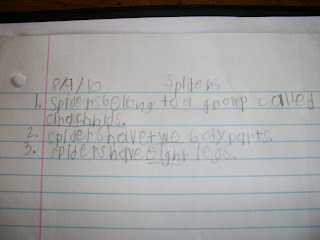 8/9/10 Spiders
1. Spiders belong to a group called
arachnids.
2. spiders have two body parts.
3. spiders have eight legs.